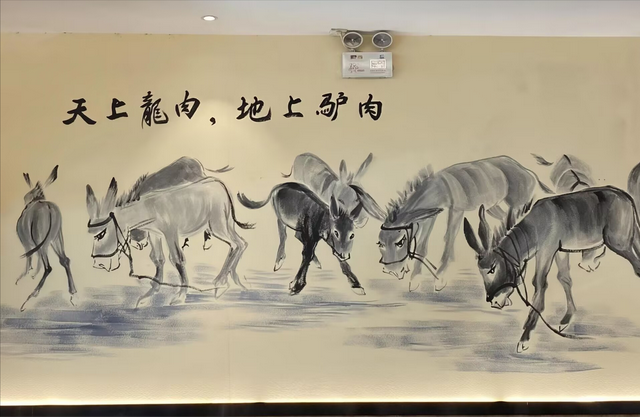 天上龍肉，地上驴肉